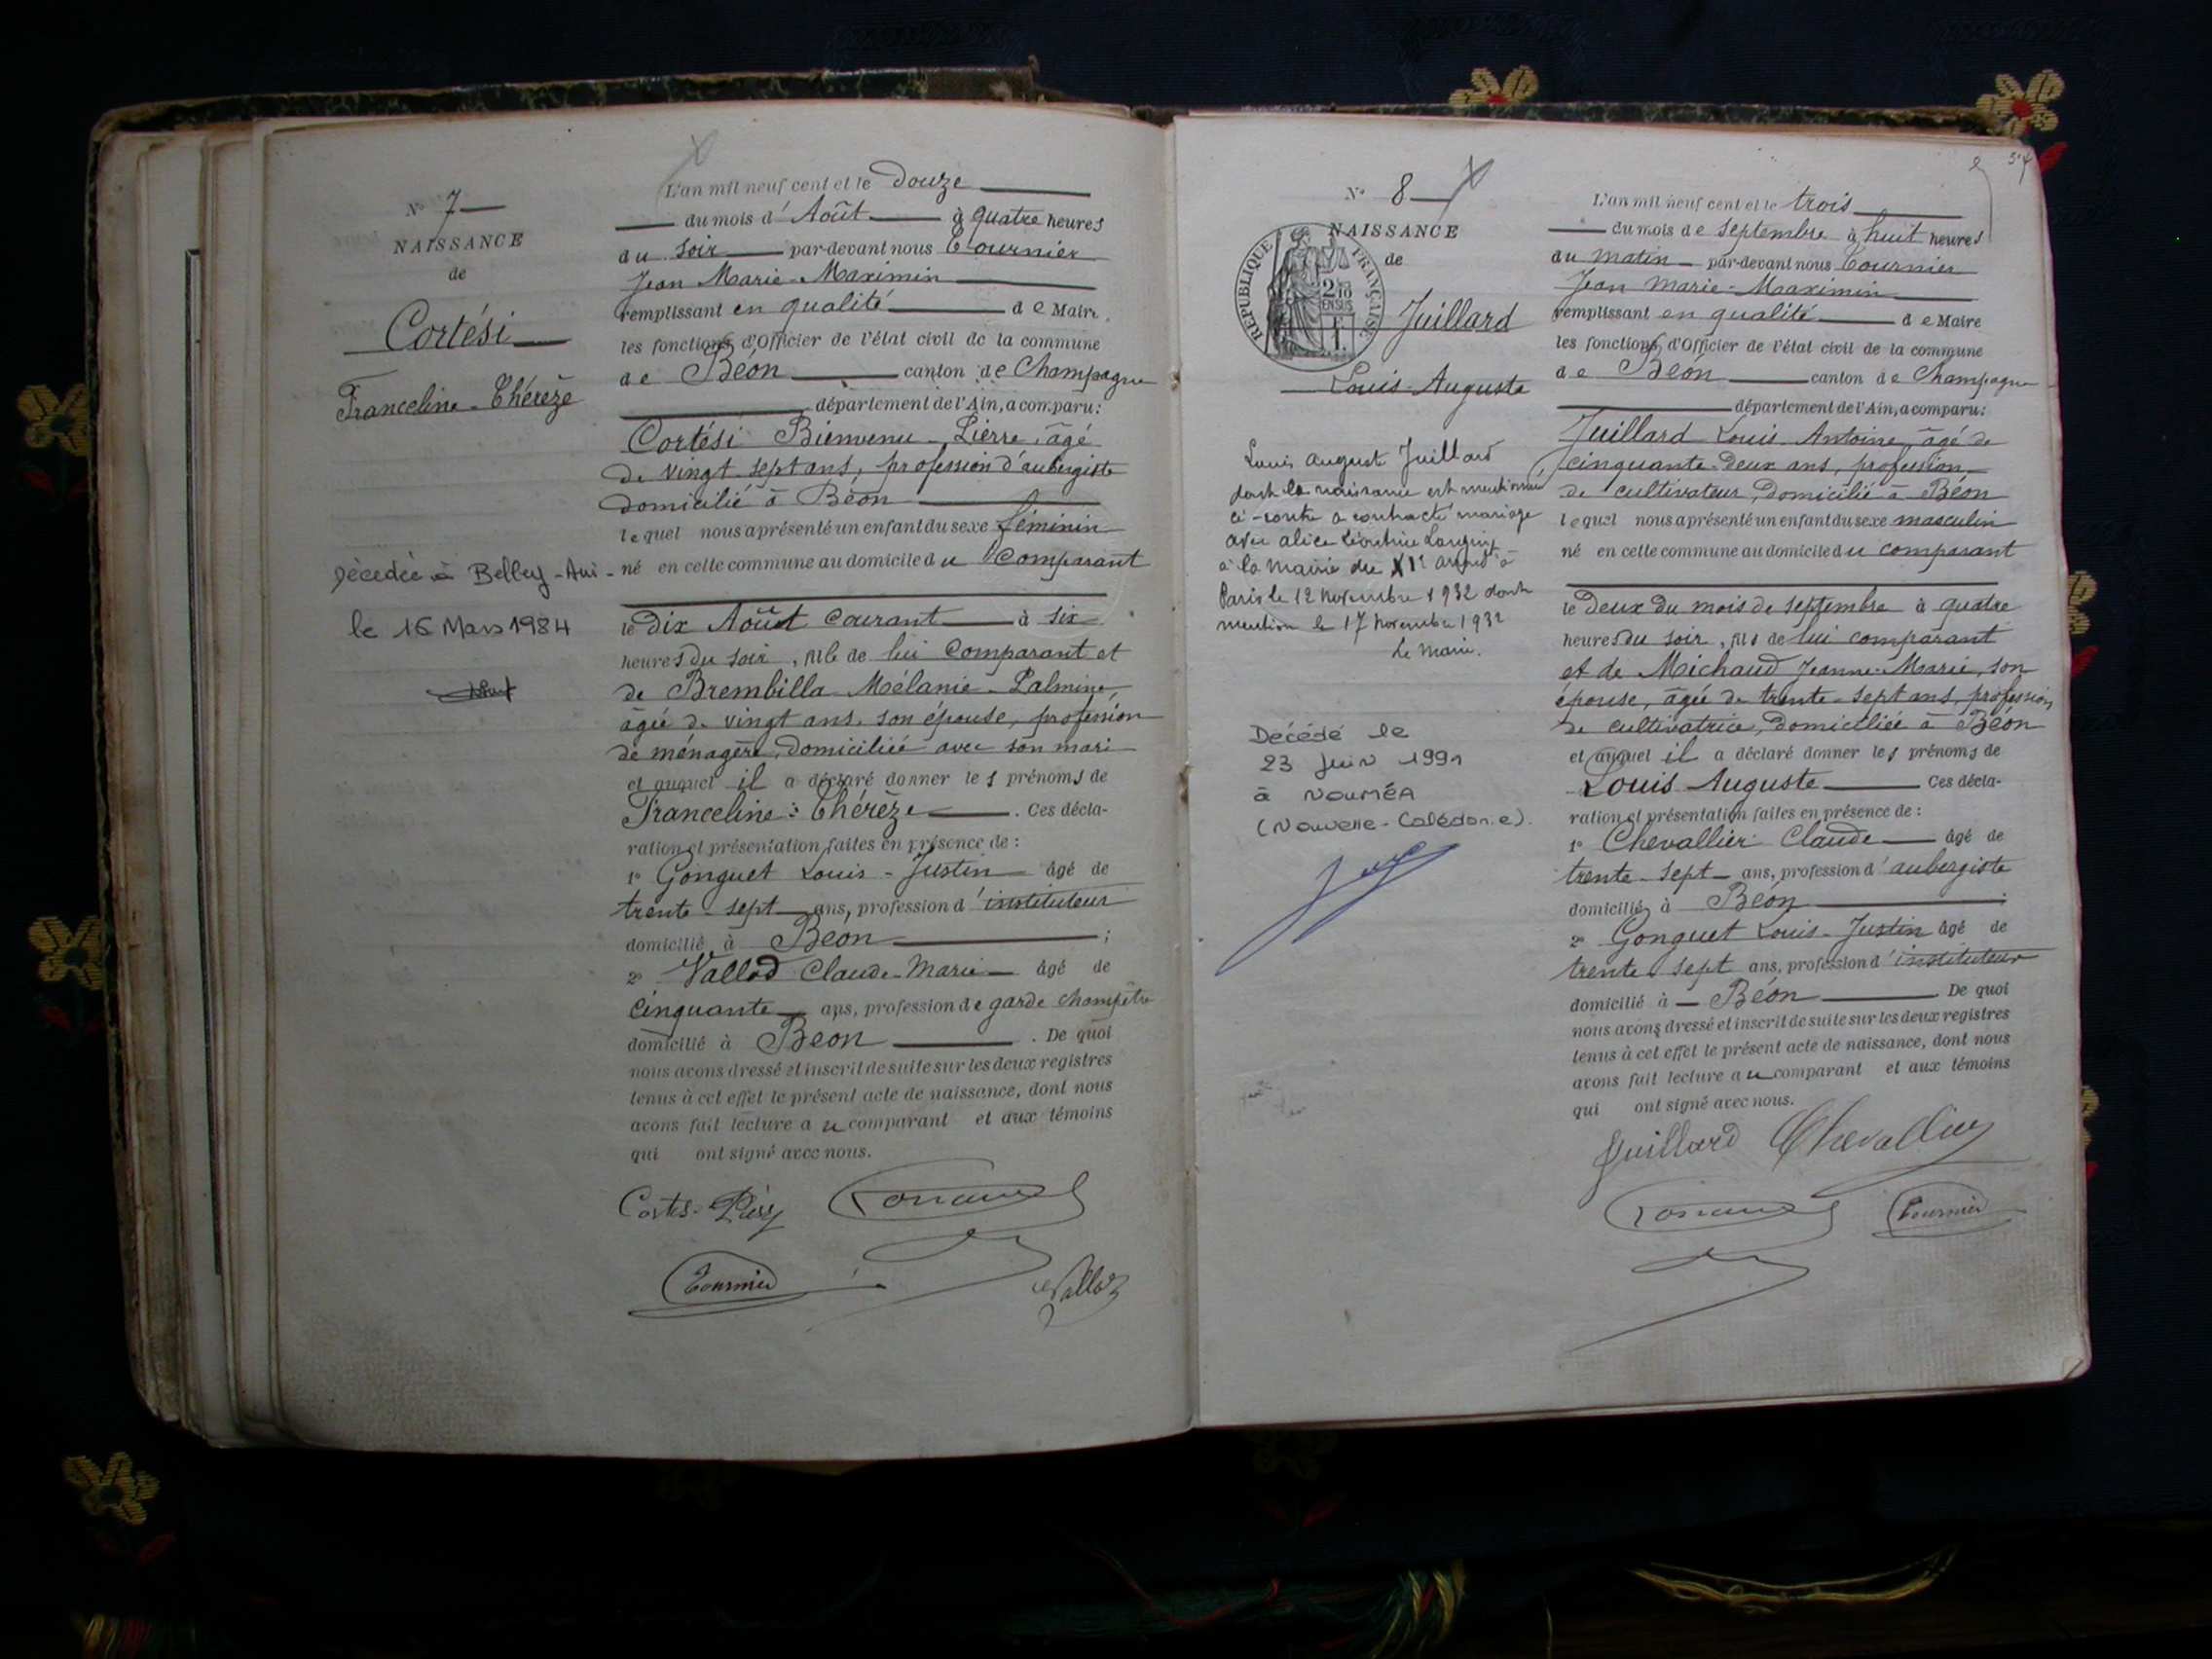 N° 7
NAISSANCE
de
Cortési
Franceline - Thérèze
Décédée à Belley - Ain -
le 16 Mars 1984
L'an mil neuf cent et le douze
du mois d'Août à quatre heures
du soir par-devant nous Tournier
Jean Marie - Maximin
remplissant en qualité de Maire
les fonctions d'Officier de l'état civil de la commune
de Béon canton de Champagne
département de l'Ain, a comparu:
Cortési Bienvenu - Pierre, âgé
de vingt-sept ans, profession d'aubergiste
domicilié à Béon
lequel nous a présenté un enfant du sexe féminin
né en cette commune au domicile du Comparant
le dix Août courant à six
heures du soir, fille de lui Comparant et
de Brembilla Mélanie - Palmine,
âgée de vingt ans, son épouse, profession
de ménagère, domiciliée avec son mari
et auquel il a déclaré donner les prénoms de
Franceline : Thérèze . Ces décla-
ration et présentation faites en présence de :
1° Gonguet Louis - Justin âgé de
trente - sept ans, profession d'instituteur
domicilié à Béon ;
2° Vallod Claude - Marie âgé de
cinquante ans, profession de garde champêtre
domicilié à Béon . De quoi
nous avons dressé et inscrit de suite sur les deux registres
tenus à cet effet le présent acte de naissance, dont nous
avons fait lecture au comparant et aux témoins
qui ont signé avec nous.
Tournier
Vallod
57
N° 8
NAISSANCE
de
REPUBLIQUE FRANÇAISE
2/10
EN SUS
Juillard
Louis - Auguste
Louis Auguste Juillard
dont la naissance est mentionnée
ci-contre a contracté mariage
avec Alice Léontine
à la Mairie du arrond à
Paris le 12 Novembre 1932 dont
mention le 17 Novembre 1932
Le Maire.
Décédé le
23 Juin 1991
à NOUMÉA
(Nouvelle-Calédonie).
L'an mil neuf cent et le trois
du mois de Septembre à huit heures
du matin par-devant nous Tournier
Jean Marie - Maximin
remplissant en qualité de Maire
les fonctions d'Officier de l'état civil de la commune
de Béon canton de Champagne
département de l'Ain, a comparu:
Juillard Louis Antoine, âgé de
cinquante-deux ans, profession
de cultivateur, domicilié à Béon
lequel nous a présenté un enfant du sexe masculin
né en cette commune au domicile du comparant
le deux du mois de septembre à quatre
heures du soir, fils de lui comparant
et de Michaud Jeanne-Marie, son
épouse, âgée de trente-sept ans, profession
de cultivatrice, domiciliée à Béon
et auquel il a déclaré donner les prénoms de
Louis Auguste Ces décla-
ration et présentation faites en présence de :
1° Chevallier Claude âgé de
trente-sept ans, profession d'aubergiste
domicilié à Béon ;
2° Gonguet Louis - Justin âgé de
trente-sept ans, profession d'instituteur
domicilié à Béon De quoi
nous avons dressé et inscrit de suite sur les deux registres
tenus à cet effet le présent acte de naissance, dont nous
avons fait lecture au comparant et aux témoins
qui ont signé avec nous.
Juillard Chevallier
Tournier